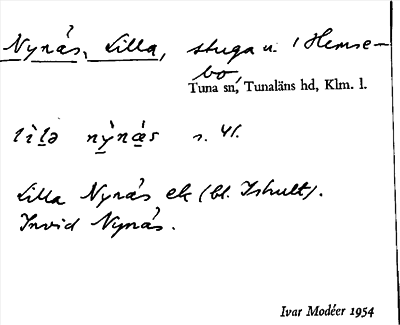 Nynäs, Lilla, stuga u. Hemse-
bo,
Tuna sn, Tunaläns hd, Klm. l.
lìlə nỳnæ̀s n. 4/1.
Lilla Nynäs ek (bl. Ishult).
Invid Nynäs.
Ivar Modéer 1954